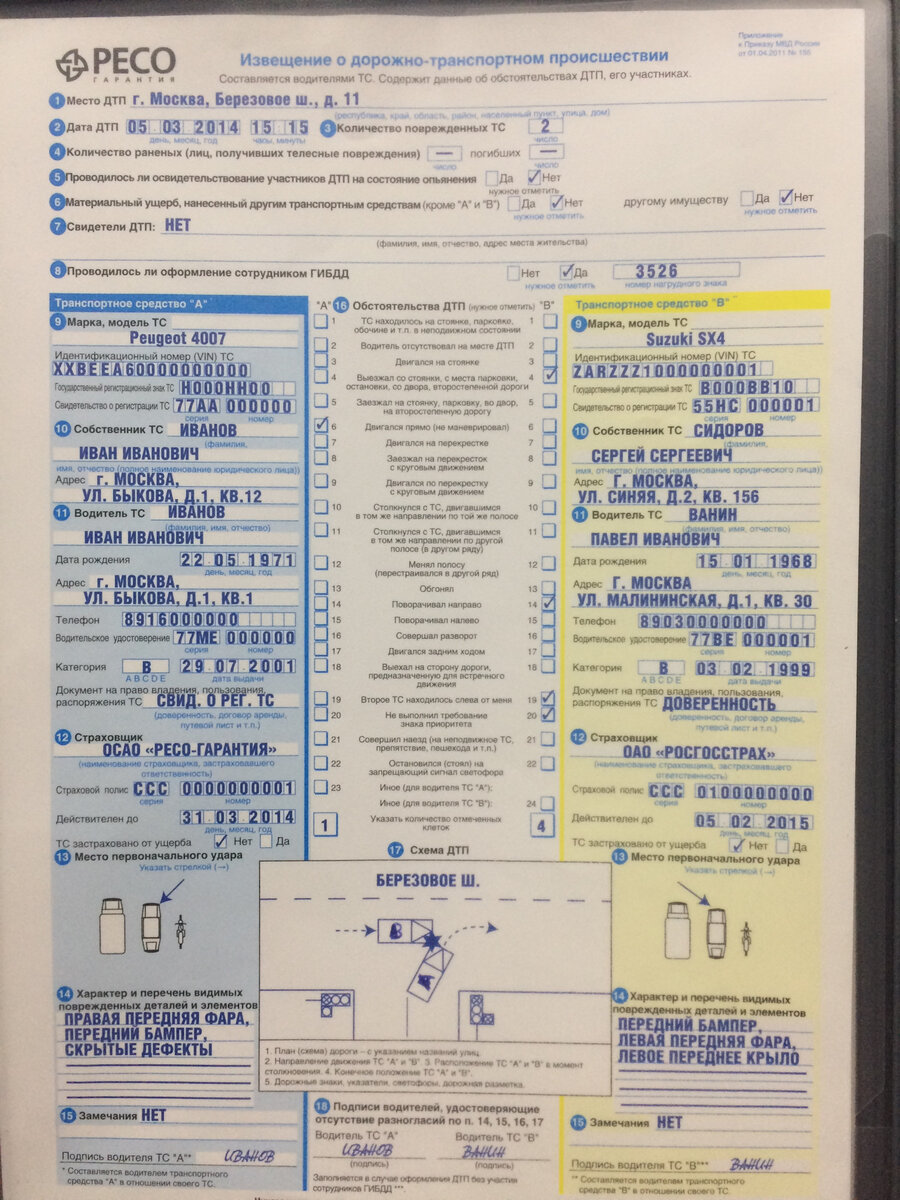 РЕСО
ГАРАНТИЯ
Приложение
к Приказу МВД России
от 01.04.2011 № 155
Извещение о дорожно-транспортном происшествии
Составляется водителями ТС. Содержит данные об обстоятельствах ДТП, его участниках.
1 Место ДТП г. Москва, Березовое ш., д. 11
(республика, край, область, район, населенный пункт, улица, дом)
2 Дата ДТП 05 03 2014 15 15 3 Количество поврежденных ТС 2
день, месяц, год часы, минуты число
4 Количество раненых (лиц, получивших телесные повреждения) — погибших —
число число
5 Проводилось ли освидетельствование участников ДТП на состояние опьянения Да Нет
нужное отметить
6 Материальный ущерб, нанесенный другим транспортным средствам (кроме "А" и "В") Да Нет другому имуществу Да Нет
нужное отметить нужное отметить
7 Свидетели ДТП: НЕТ
(фамилия, имя, отчество, адрес места жительства)
8 Проводилось ли оформление сотрудником ГИБДД Нет Да 3526
нужное отметить номер нагрудного знака
Транспортное средство "А"
9 Марка, модель ТС
Peugeot 4007
Идентификационный номер (VIN) ТС
XXBEEA60000000000
Государственный регистрационный знак ТС Н000НН00
Свидетельство о регистрации ТС 77АА 000000
серия номер
10 Собственник ТС ИВАНОВ
(фамилия,
ИВАН ИВАНОВИЧ
имя, отчество (полное наименование юридического лица))
Адрес г. МОСКВА,
УЛ. БЫКОВА, Д.1, КВ.12
11 Водитель ТС ИВАНОВ
(фамилия, имя, отчество)
ИВАН ИВАНОВИЧ
Дата рождения 22 05 1971
день, месяц, год
Адрес г. МОСКВА,
УЛ. БЫКОВА, Д.1, КВ.1
Телефон 8916000000
Водительское удостоверение 77МЕ 000000
серия номер
Категория В 29 07 2001
A B C D E дата выдачи
Документ на право владения, пользования,
распоряжения ТС СВИД. О РЕГ. ТС
(доверенность, договор аренды,
путевой лист и т.п.)
12 Страховщик
ОСАО «РЕСО-ГАРАНТИЯ»
(наименование страховщика, застраховавшего
ответственность)
Страховой полис ССС 0000000001
серия номер
Действителен до 31 03 2014
день, месяц, год
ТС застраховано от ущерба Нет Да
13 Место первоначального удара
Указать стрелкой (→)
14 Характер и перечень видимых
поврежденных деталей и элементов
ПРАВАЯ ПЕРЕДНЯЯ ФАРА,
ПЕРЕДНИЙ БАМПЕР,
СКРЫТЫЕ ДЕФЕКТЫ
15 Замечания НЕТ
Подпись водителя ТС "А"* ИВАНОВ
* Составляется водителем транспортного
средства "А" в отношении своего ТС.
"А" 16 Обстоятельства ДТП (нужное отметить) "В"
1 ТС находилось на стоянке, парковке, 1
обочине и т.п. в неподвижном состоянии
2 Водитель отсутствовал на месте ДТП 2
3 Двигался на стоянке 3
4 Выезжал со стоянки, с места парковки, 4
остановки, со двора, второстепенной дороги
5 Заезжал на стоянку, парковку, во двор, 5
на второстепенную дорогу
6 Двигался прямо (не маневрировал) 6
7 Двигался на перекрестке 7
8 Заезжал на перекресток 8
с круговым движением
9 Двигался по перекрестку 9
с круговым движением
10 Столкнулся с ТС, двигавшимся 10
в том же направлении по той же полосе
11 Столкнулся с ТС, двигавшимся 11
в том же направлении по другой
полосе (в другом ряду)
12 Менял полосу 12
(перестраивался в другой ряд)
13 Обгонял 13
14 Поворачивал направо 14
15 Поворачивал налево 15
16 Совершал разворот 16
17 Двигался задним ходом 17
18 Выехал на сторону дороги, 18
предназначенную для встречного
движения
19 Второе ТС находилось слева от меня 19
20 Не выполнил требование 20
знака приоритета
21 Совершил наезд (на неподвижное ТС, 21
препятствие, пешехода и т.п.)
22 Остановился (стоял) на 22
запрещающий сигнал светофора
23 Иное (для водителя ТС "А"):
Иное (для водителя ТС "В"): 24
1 Указать количество отмеченных 4
клеток
17 Схема ДТП
БЕРЕЗОВОЕ Ш.
В
А
1. План (схема) дороги – с указанием названий улиц.
2. Направление движения ТС "А" и "В" 3. Расположение ТС "А" и "В" в момент
столкновения. 4. Конечное положение ТС "А" и "В".
5. Дорожные знаки, указатели, светофоры, дорожная разметка.
18 Подписи водителей, удостоверяющие
отсутствие разногласий по п. 14, 15, 16, 17
Водитель ТС "А" Водитель ТС "В"
ИВАНОВ ВАНИН
(подпись) (подпись)
Заполняется в случае оформления ДТП без участия
сотрудников ГИБДД ***
Транспортное средство "В"
9 Марка, модель ТС
Suzuki SX4
Идентификационный номер (VIN) ТС
ZARZZZ1000000001
Государственный регистрационный знак ТС В000ВВ10
Свидетельство о регистрации ТС 55НС 000001
серия номер
10 Собственник ТС СИДОРОВ
(фамилия,
СЕРГЕЙ СЕРГЕЕВИЧ
имя, отчество (полное наименование юридического лица))
Адрес Г. МОСКВА,
УЛ. СИНЯЯ, Д.2, КВ. 156
11 Водитель ТС ВАНИН
(фамилия, имя, отчество)
ПАВЕЛ ИВАНОВИЧ
Дата рождения 15 01 1968
день, месяц, год
Адрес Г. МОСКВА
УЛ. МАЛИНИНСКАЯ, Д.1, КВ. 30
Телефон 89030000000
Водительское удостоверение 77ВЕ 000001
серия номер
Категория В 03 02 1999
A B C D E дата выдачи
Документ на право владения, пользования,
распоряжения ТС ДОВЕРЕННОСТЬ
(доверенность, договор аренды,
путевой лист и т.п.)
12 Страховщик
ОАО «РОСГОССТРАХ»
(наименование страховщика, застраховавшего
ответственность)
Страховой полис ССС 0100000000
серия номер
Действителен до 05 02 2015
день, месяц, год
ТС застраховано от ущерба Нет Да
13 Место первоначального удара
Указать стрелкой (→)
14 Характер и перечень видимых
поврежденных деталей и элементов
ПЕРЕДНИЙ БАМПЕР,
ЛЕВАЯ ПЕРЕДНЯЯ ФАРА,
ЛЕВОЕ ПЕРЕДНЕЕ КРЫЛО
15 Замечания НЕТ
Подпись водителя ТС "В"** ВАНИН
** Составляется водителем транспортного
средства "В" в отношении своего ТС.